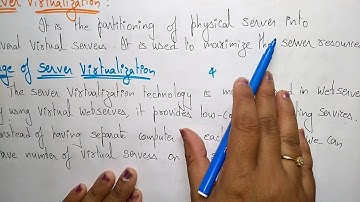 Server Virtualization:
It is the partitioning of physical server into
virtual servers. It is used to maximize the server resources
of Server Virtualization
The server virtualization technology is used in webservers
by using virtual webservers, it provides low-co services.
instead of having separate computer eac we can
have number of virtual servers on